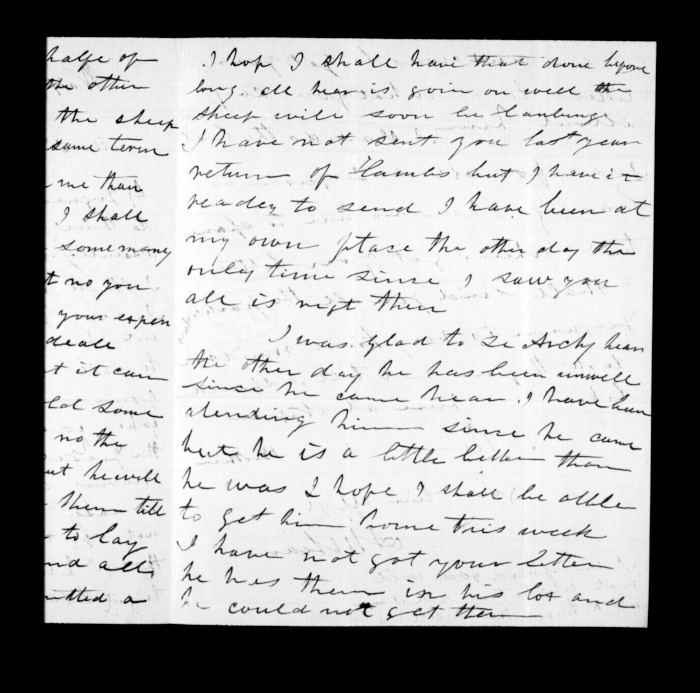 halfe of
the other
the sheep
same term
me than
I shall
some many
t no you
your expen
deall
t it can
old some
no the
ut he will
them till
to lay
nd all
mtted a
I hop I shall have that done before
long all hear is goin on well the
sheep will soon be lambing
I have not sent you last year
return of Lambs but I have it
readey to send I have been at
my own place the other day the
only time since I saw you
all is rigt ther
I was glad to se Archy hear
the other day he has been unwell
since he came hear. I have been
atending him since he came
but he is a little better than
he was I hope I shall be able
to get him home this week
I have not got your Letter
he has them in his box and
he could not get them